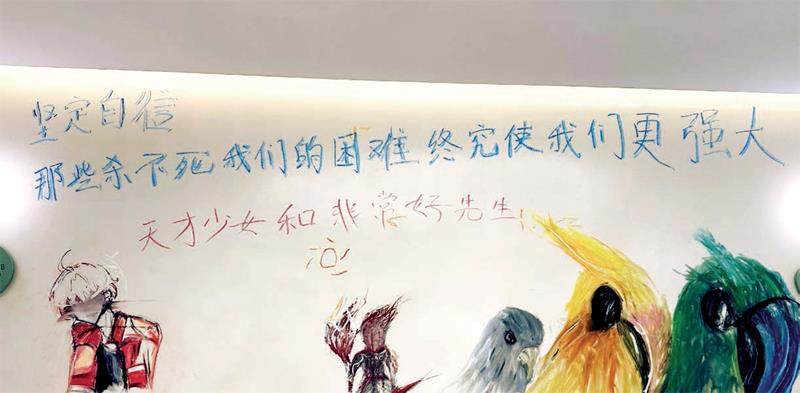 坚定自信
那些杀不死我们的困难终究使我们更强大
天才少女和非常好先生